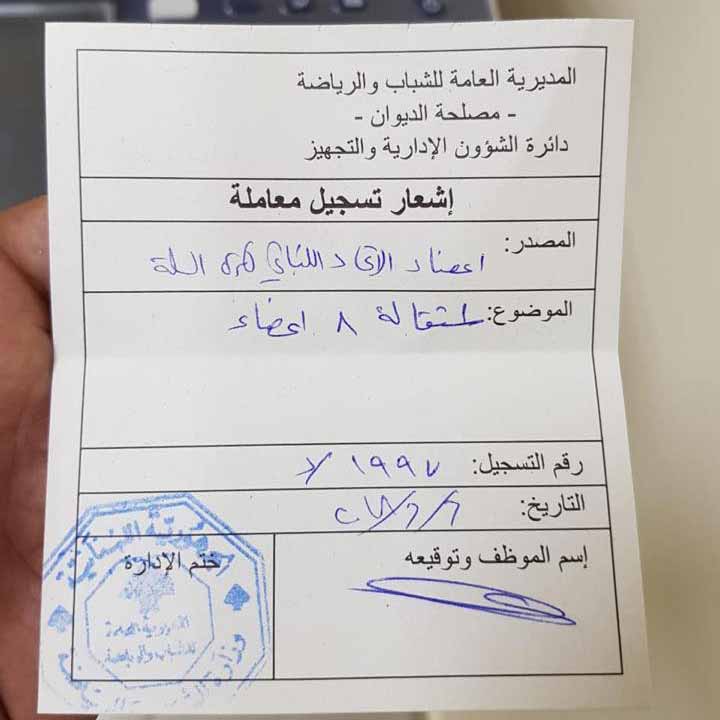 المديرية العامة للشباب والرياضة
- مصلحة الديوان -
دائرة الشؤون الإدارية والتجهيز
إشعار تسجيل معاملة
المصدر: اعضاء الاتحاد اللبناني لكرة السلة
الموضوع: استقالة ٨ اعضاء
رقم التسجيل: ١٩٩٧
التاريخ:
إسم الموظف وتوقيعه
ختم الإدارة
الجمهورية اللبنانية
المديرية العامة
للشباب والرياضة
وزارة